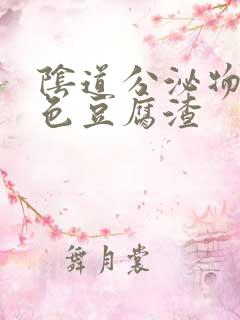 陰道分泌物
色豆腐渣
舞月裳